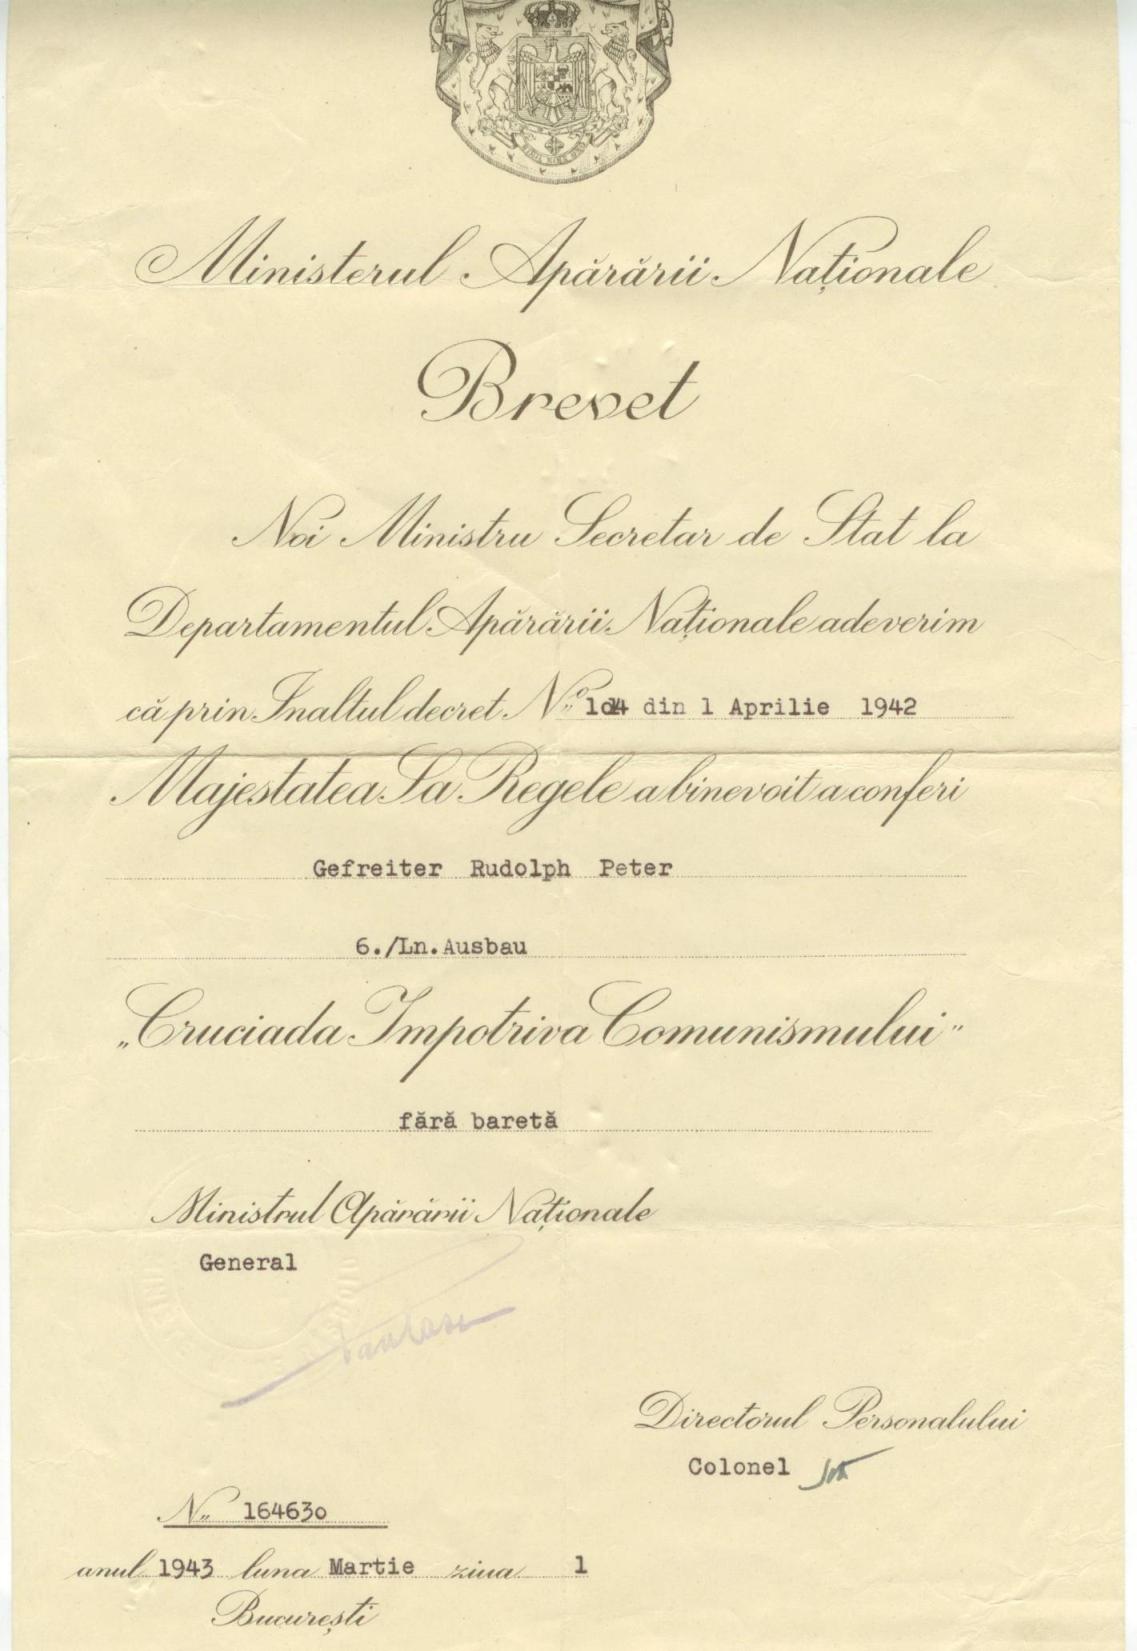 Ministerul Apărării Naționale
Brevet
Noi Ministru Secretar de Stat la
Departamentul Apărării Naționale adeverim
că prin Inaltul decret No din 1 Aprilie 1942
Majestatea Sa Regele a binevoit a conferi
Gefreiter Rudolph Peter
6./Ln.Ausbau
„Cruciada Impotriva Comunismului”
fără baretă
Ministrul Apărării Naționale
General
Directorul Personalului
Colonel
N 164630
anul 1943 luna Martie ziua 1
București